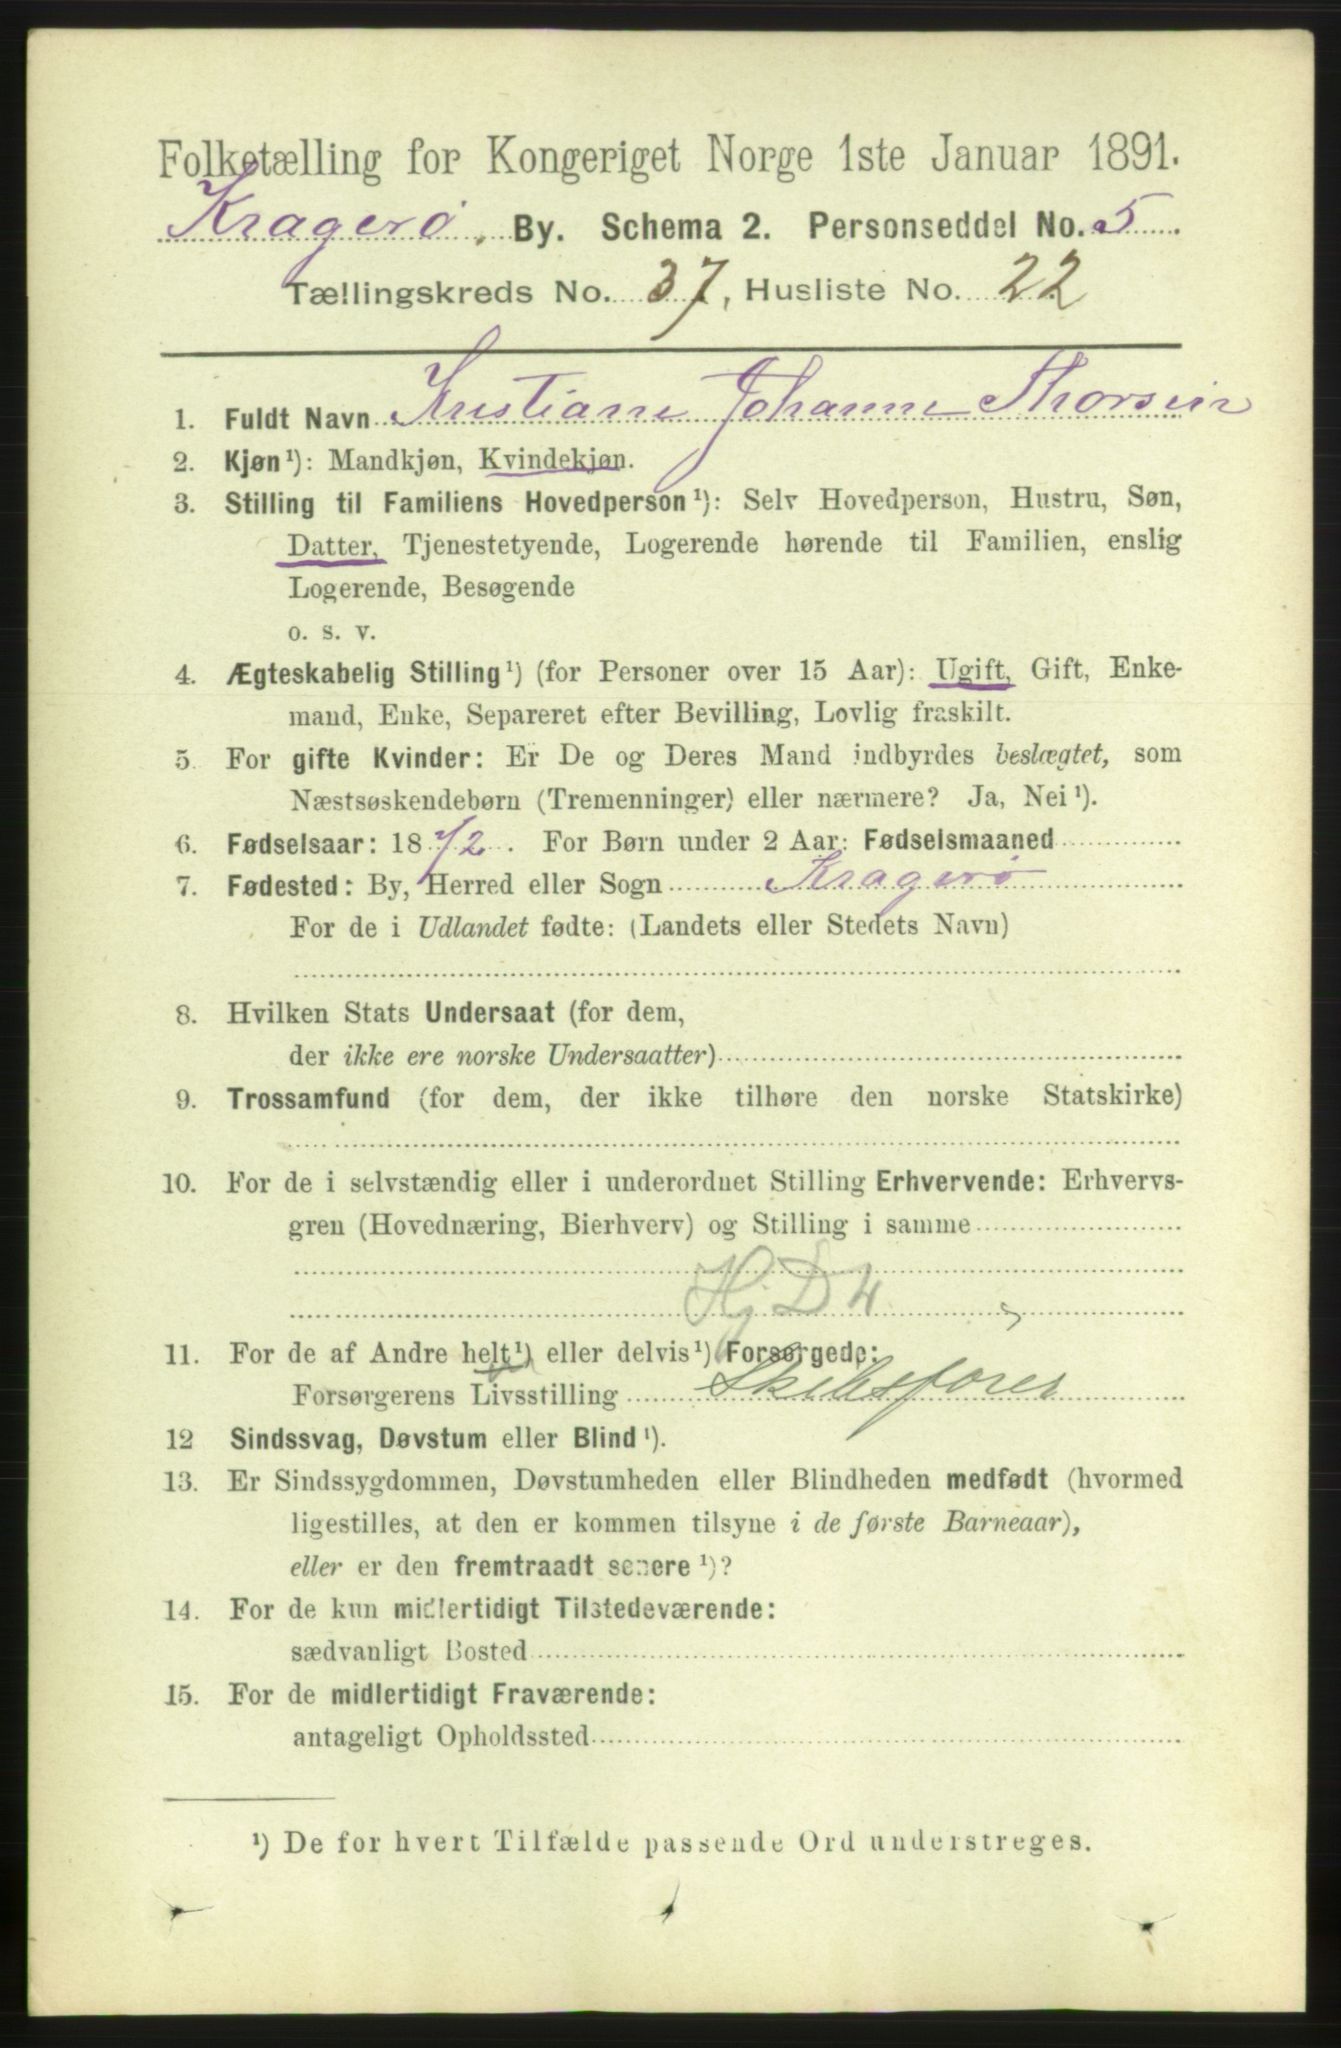 Folketælling for Kongeriget Norge 1ste Januar 1891.
Kragerø, By. Schema 2. Personseddel No. 5
Tællingskreds No. 37, Husliste No. 22
1. Fuldt Navn Kristiane Johanne Thorsen
2. Kjøn¹): Mandkjøn, Kvindekjøn.
3. Stilling til Familiens Hovedperson¹): Selv Hovedperson, Hustru, Søn,
Datter, Tjenestetyende, Logerende hørende til Familien, enslig
Logerende, Besøgende
o. s. v.
4. Ægteskabelig Stilling¹) (for Personer over 15 Aar): Ugift, Gift, Enke-
mand, Enke, Separeret efter Bevilling, Lovlig fraskilt.
5. For gifte Kvinder: Er De og Deres Mand indbyrdes beslægtet, som
Næstsøskendebørn (Tremenninger) eller nærmere? Ja, Nei¹).
6. Fødselsaar: 1872. For Børn under 2 Aar: Fødselsmaaned
7. Fødested: By, Herred eller Sogn Kragerø
For de i Udlandet fødte: (Landets eller Stedets Navn)
8. Hvilken Stats Undersaat (for dem,
der ikke ere norske Undersaatter)
9. Trossamfund (for dem, der ikke tilhøre den norske Statskirke)
10. For de i selvstændig eller i underordnet Stilling Erhvervende: Erhvervs-
gren (Hovednæring, Bierhverv) og Stilling i samme
Hj D 4
11. For de af Andre helt¹) eller delvis¹) Forsørgede:
Forsørgerens Livsstilling Skibsfører
12 Sindssvag, Døvstum eller Blind¹).
13. Er Sindssygdommen, Døvstumheden eller Blindheden medfødt (hvormed
ligestilles, at den er kommen tilsyne i de første Barneaar),
eller er den fremtraadt senere¹)?
14. For de kun midlertidigt Tilstedeværende:
sædvanligt Bosted
15. For de midlertidigt Fraværende:
antageligt Opholdssted
¹) De for hvert Tilfælde passende Ord understreges.